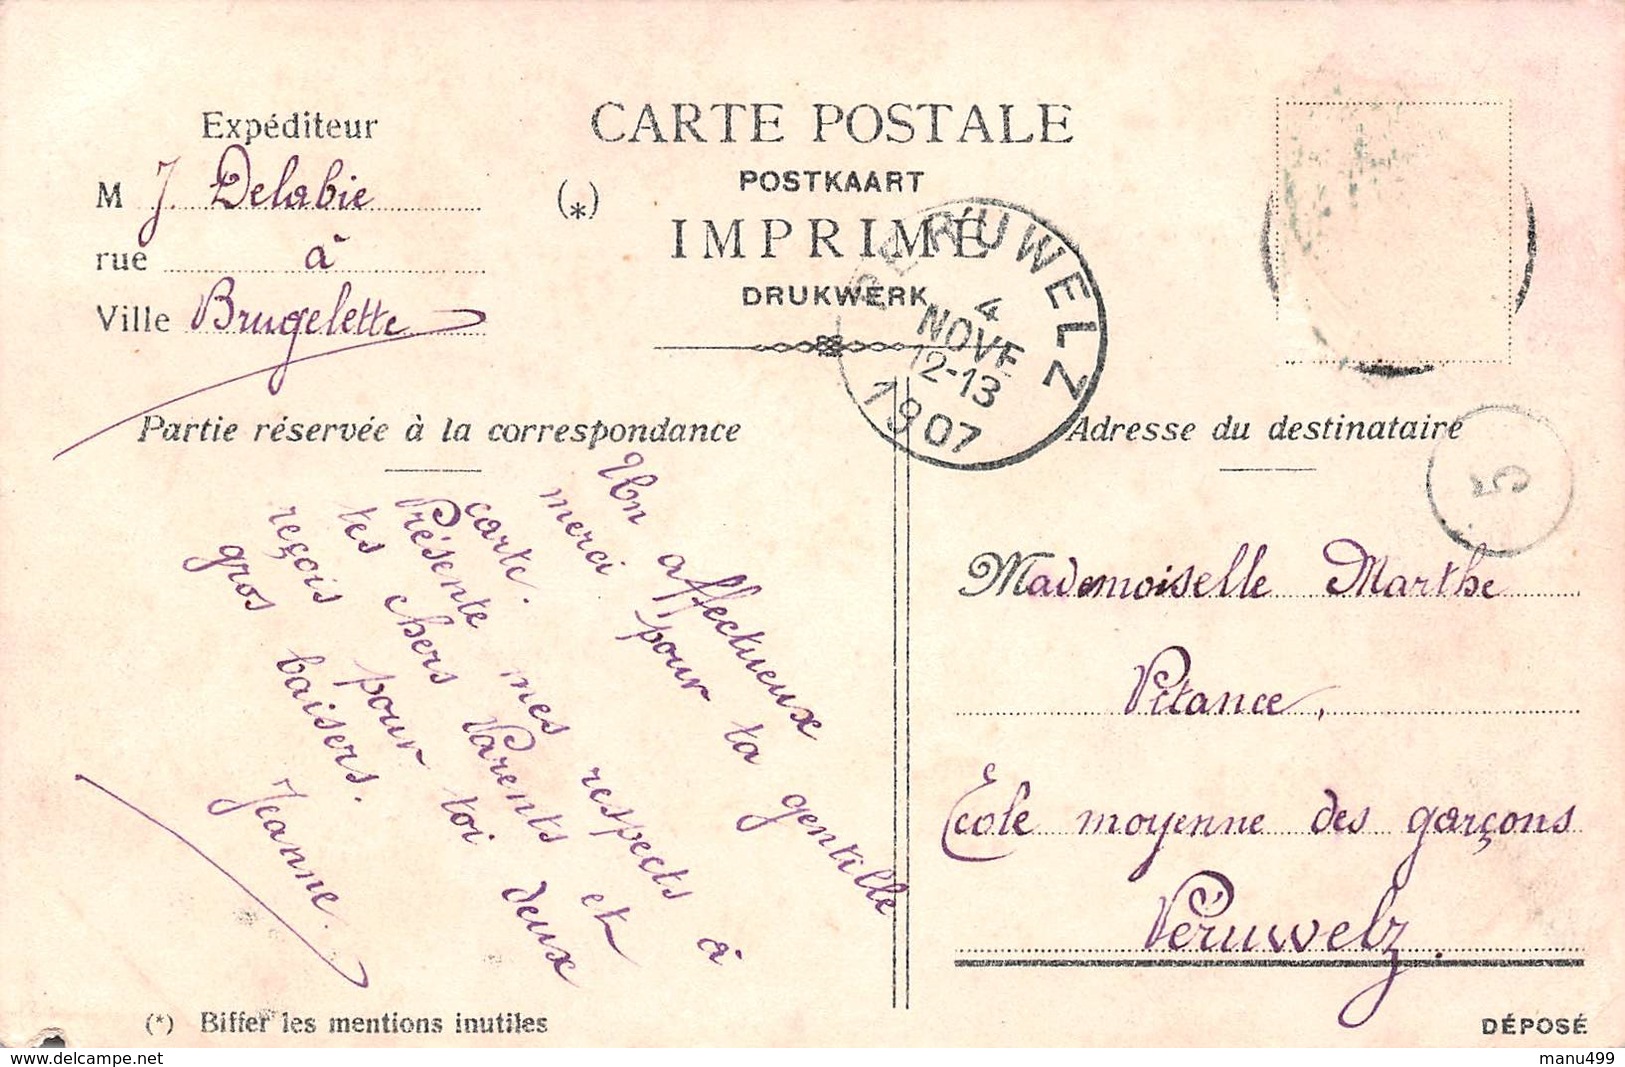 Expéditeur
M J. Delabie
rue à
Ville Brugelette
CARTE POSTALE
POSTKAART
(*)
IMPRIMÉ
DRUKWERK
PERUWELZ
4
NOVE
12-13
1907
Partie réservée à la correspondance
Un affectueux
merci pour ta gentille
carte.
Présente mes respects à
tes chers Parents et
reçois pour toi deux
gros baisers.
Jeanne.
Adresse du destinataire
5
Mademoiselle Marthe
Pitance,
École moyenne des garçons
Péruwelz.
(*) Biffer les mentions inutiles
DÉPOSÉ
delcampe.net
manu499